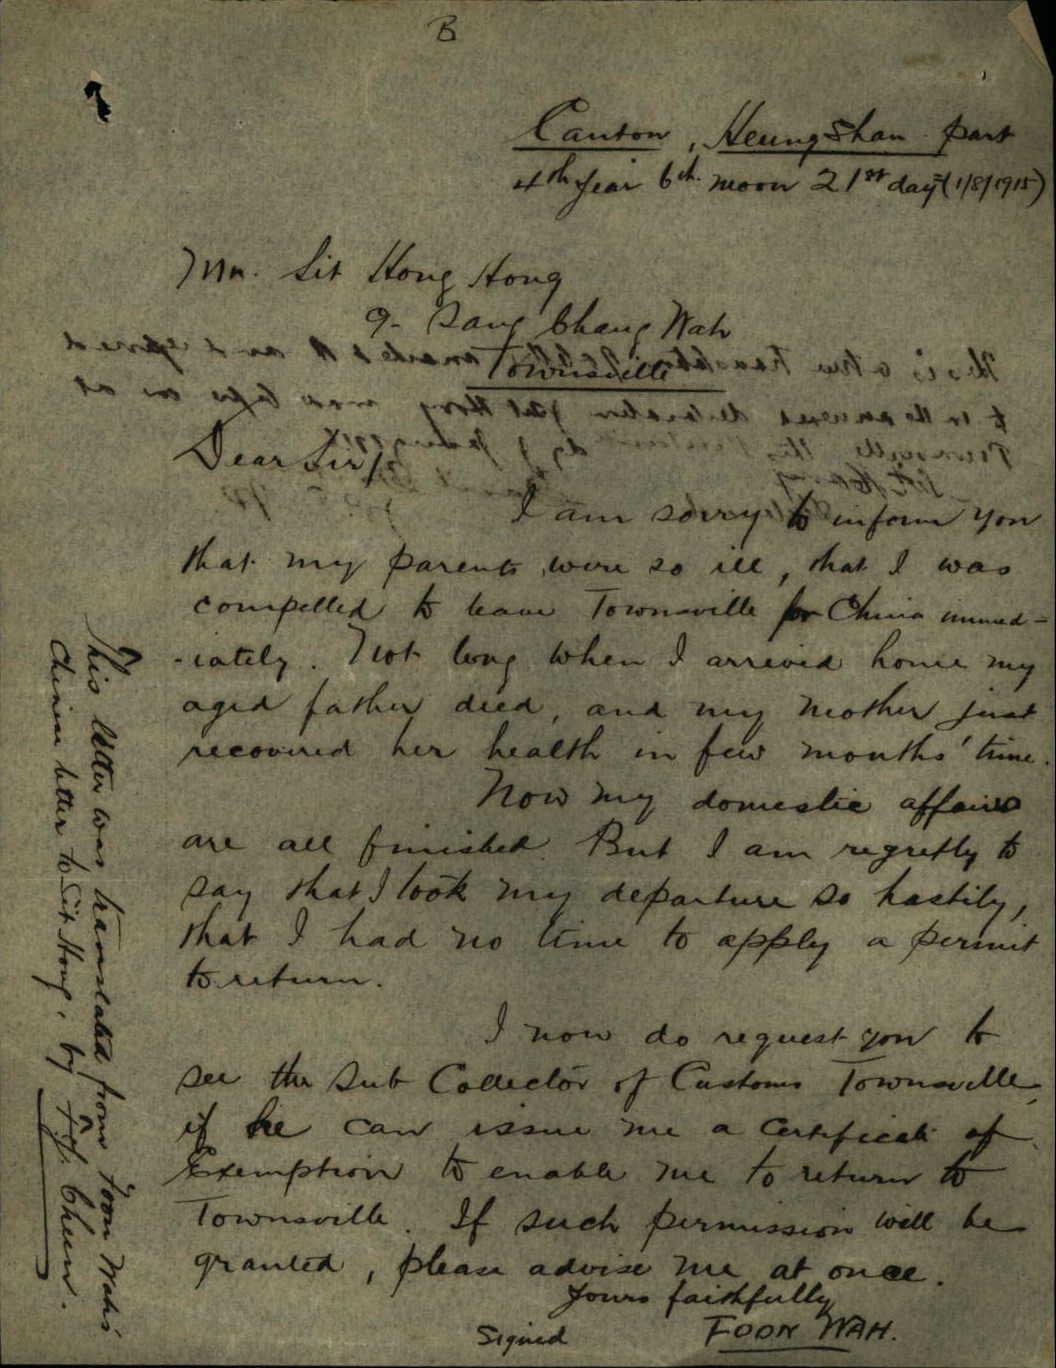 B
Canton, Heungshan part
4th year 6th moon 21st day = (1/8/1915)
Mr. Sit Hong Hong
9- Sang Chang Wah
Townsville
Dear Sir/
I am sorry to inform you
that my parents were so ill, that I was
compelled to leave Townsville for China immed-
-iately. Not long when I arrived home my
aged father died, and my mother just
recovered her health in few months' time.
Now my domestic affairs
are all finished. But I am regretly to
say that I took my departure so hastily,
that I had no time to apply a permit
to return.
I now do request you to
see the Sub Collector of Customs Townsville,
if he can issue me a Certificate of
Exemption to enable me to return to
Townsville. If such permission will be
granted, please advise me at once.
Yours faithfully
Signed FOON WAH.
This letter was translated from Foon Wah's
Chinese letter to Sit Hong, by F.J. Cheen.